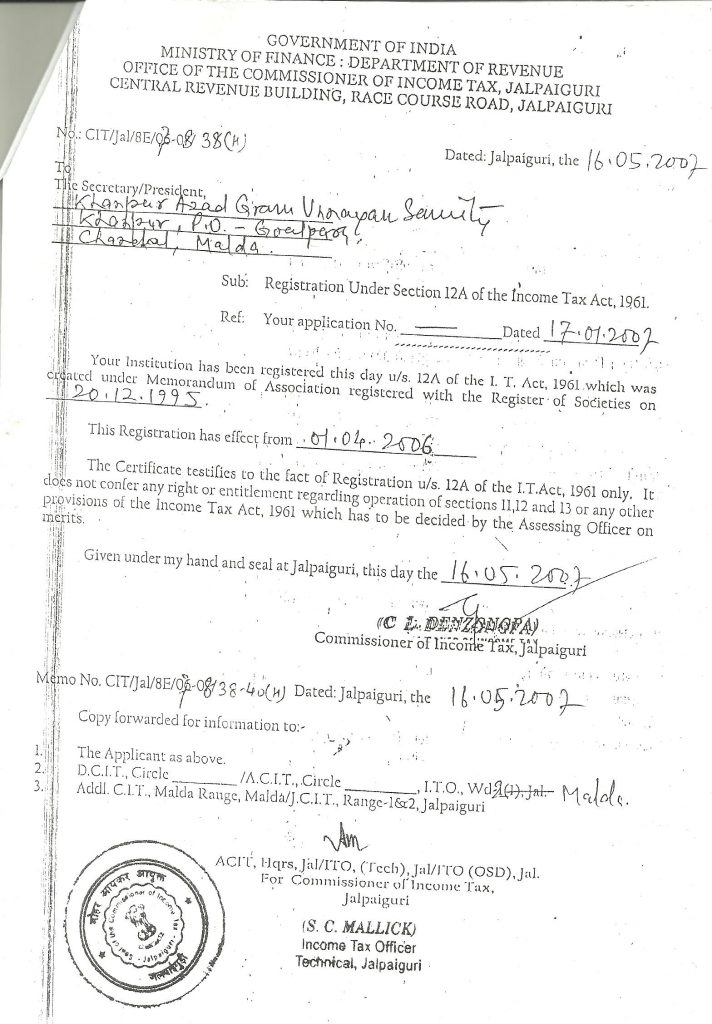 GOVERNMENT OF INDIA
MINISTRY OF FINANCE : DEPARTMENT OF REVENUE
OFFICE OF THE COMMISSIONER OF INCOME TAX, JALPAIGURI
CENTRAL REVENUE BUILDING, RACE COURSE ROAD, JALPAIGURI
No.: CIT/Jal/8E/07-08/ 38(H)
Dated: Jalpaiguri, the 16.05.2007
To
The Secretary/President,
Khanpur Azad Gram Unnayan Samity
Khanpur, P.O. - Goalpara,
Chanchal, Malda.
Sub: Registration Under Section 12A of the Income Tax Act, 1961.
Ref: Your application No. —— Dated 17.01.2007
Your Institution has been registered this day u/s. 12A of the I. T. Act, 1961 which was
created under Memorandum of Association registered with the Register of Societies on
20.12.1995.
This Registration has effect from 01.04.2006
The Certificate testifies to the fact of Registration u/s. 12A of the I.T.Act, 1961 only. It
does not confer any right or entitlement regarding operation of sections 11,12 and 13 or any other
provisions of the Income Tax Act, 1961 which has to be decided by the Assessing Officer on
merits.
Given under my hand and seal at Jalpaiguri, this day the 16.05.2007
(C L. DENZONGPA)
Commissioner of Income Tax, Jalpaiguri
Memo No. CIT/Jal/8E/07-08/38-40(H) Dated: Jalpaiguri, the 16.05.2007
Copy forwarded for information to:-
1. The Applicant as above.
2. D.C.I.T., Circle ________ /A.C.I.T., Circle ________, I.T.O., Wd2(1), Jal. Malda.
3. Addl. C.I.T., Malda Range, Malda/J.C.I.T., Range-1&2, Jalpaiguri
ACIT, Hqrs, Jal/ITO, (Tech), Jal/ITO (OSD), Jal.
For Commissioner of Income Tax,
Jalpaiguri
(S. C. MALLICK)
Income Tax Officer
Technical, Jalpaiguri
मोहर आयकर आयुक्त
Seal of the Commissioner of Income Tax
Jalpaiguri
जलपाईगुड़ी